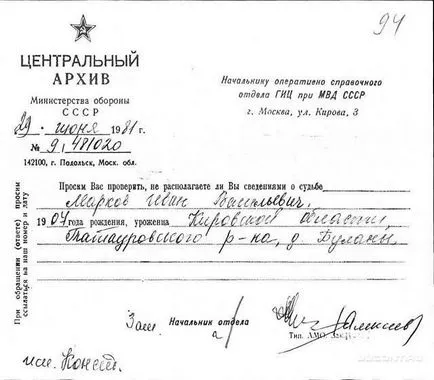 94
ЦЕНТРАЛЬНЫЙ
АРХИВ
Министерства обороны
СССР
29 июня 1981 г.
№ 9/481020
142100, г. Подольск, Моск. обл.
Начальнику оперативно справочного
отдела ГИЦ при МВД СССР
г. Москва, ул. Кирова, 3
При обращении (ответе) просим
ссылаться на наш номер и дату
Просим Вас проверить, не располагаете ли Вы сведениями о судьбе
Марков Иван Васильевич,
1907 года рождения, уроженца Кировской области,
Татауровского р-на, д. Буланы
Зам. Начальник отдела
Тип. АМО
исп.